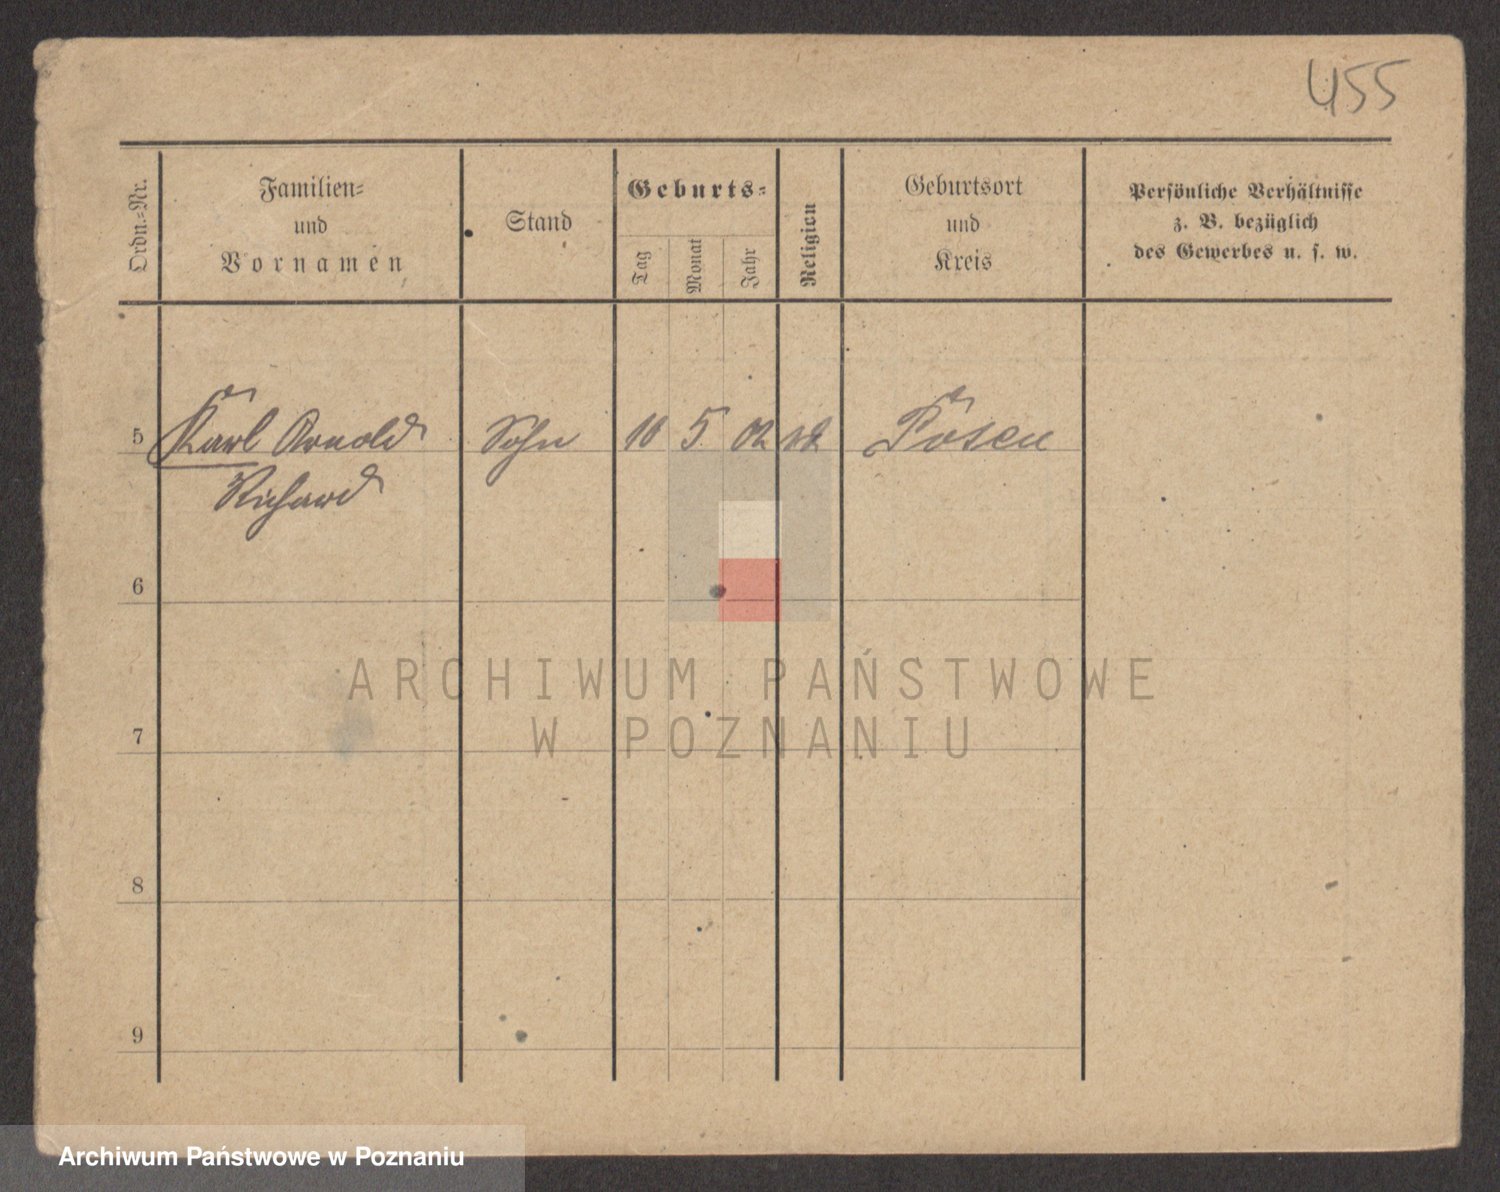 455
Ordn.-Nr.
Familien-
und
Vornamen
Stand
Geburts-
Tag
Monat
Jahr
Religion
Geburtsort
und
Kreis
Persönliche Verhältnisse
z. B. bezüglich
des Gewerbes u. s. w.
5 Karl Arnold Sohn 10 5. 02 Posen
Richard
6
7
8
9
ARCHIWUM PAŃSTWOWE
W POZNANIU
Archiwum Państwowe w Poznaniu